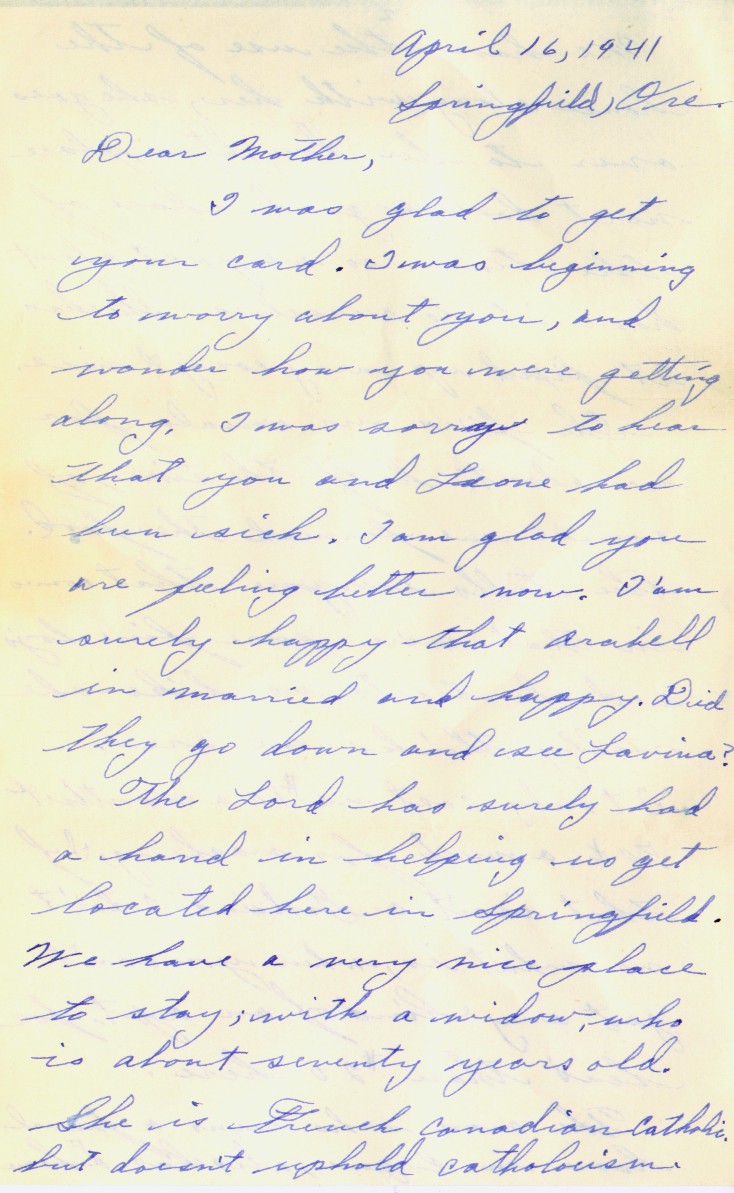 April 16, 1941
Springfield, Ore.
Dear Mother,
I was glad to get
your card. I was beginning
to worry about you, and
wonder how you were getting
along. I was sorry to hear
that you and Leone had
been sick. I am glad you
are feeling better now. I'am
surely happy that Arabell
in married and happy. Did
they go down and see Lavina?
The Lord has surely had
a hand in helping us get
located here in Springfield.
We have a very nice place
to stay; with a widow, who
is about seventy years old.
She is French Canadian Catholic.
but doesn't uphold catholocism.